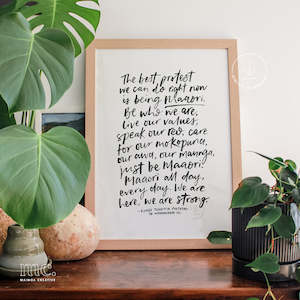 The best protest
we can do right now
is being Maaori.
Be who we are,
live our values,
speak our reo, care
for our mokopuna,
our awa, our maunga,
just be Maaori.
Maaori all day,
every day. We are
here, we are strong.
mc.
MAIMOA CREATIVE